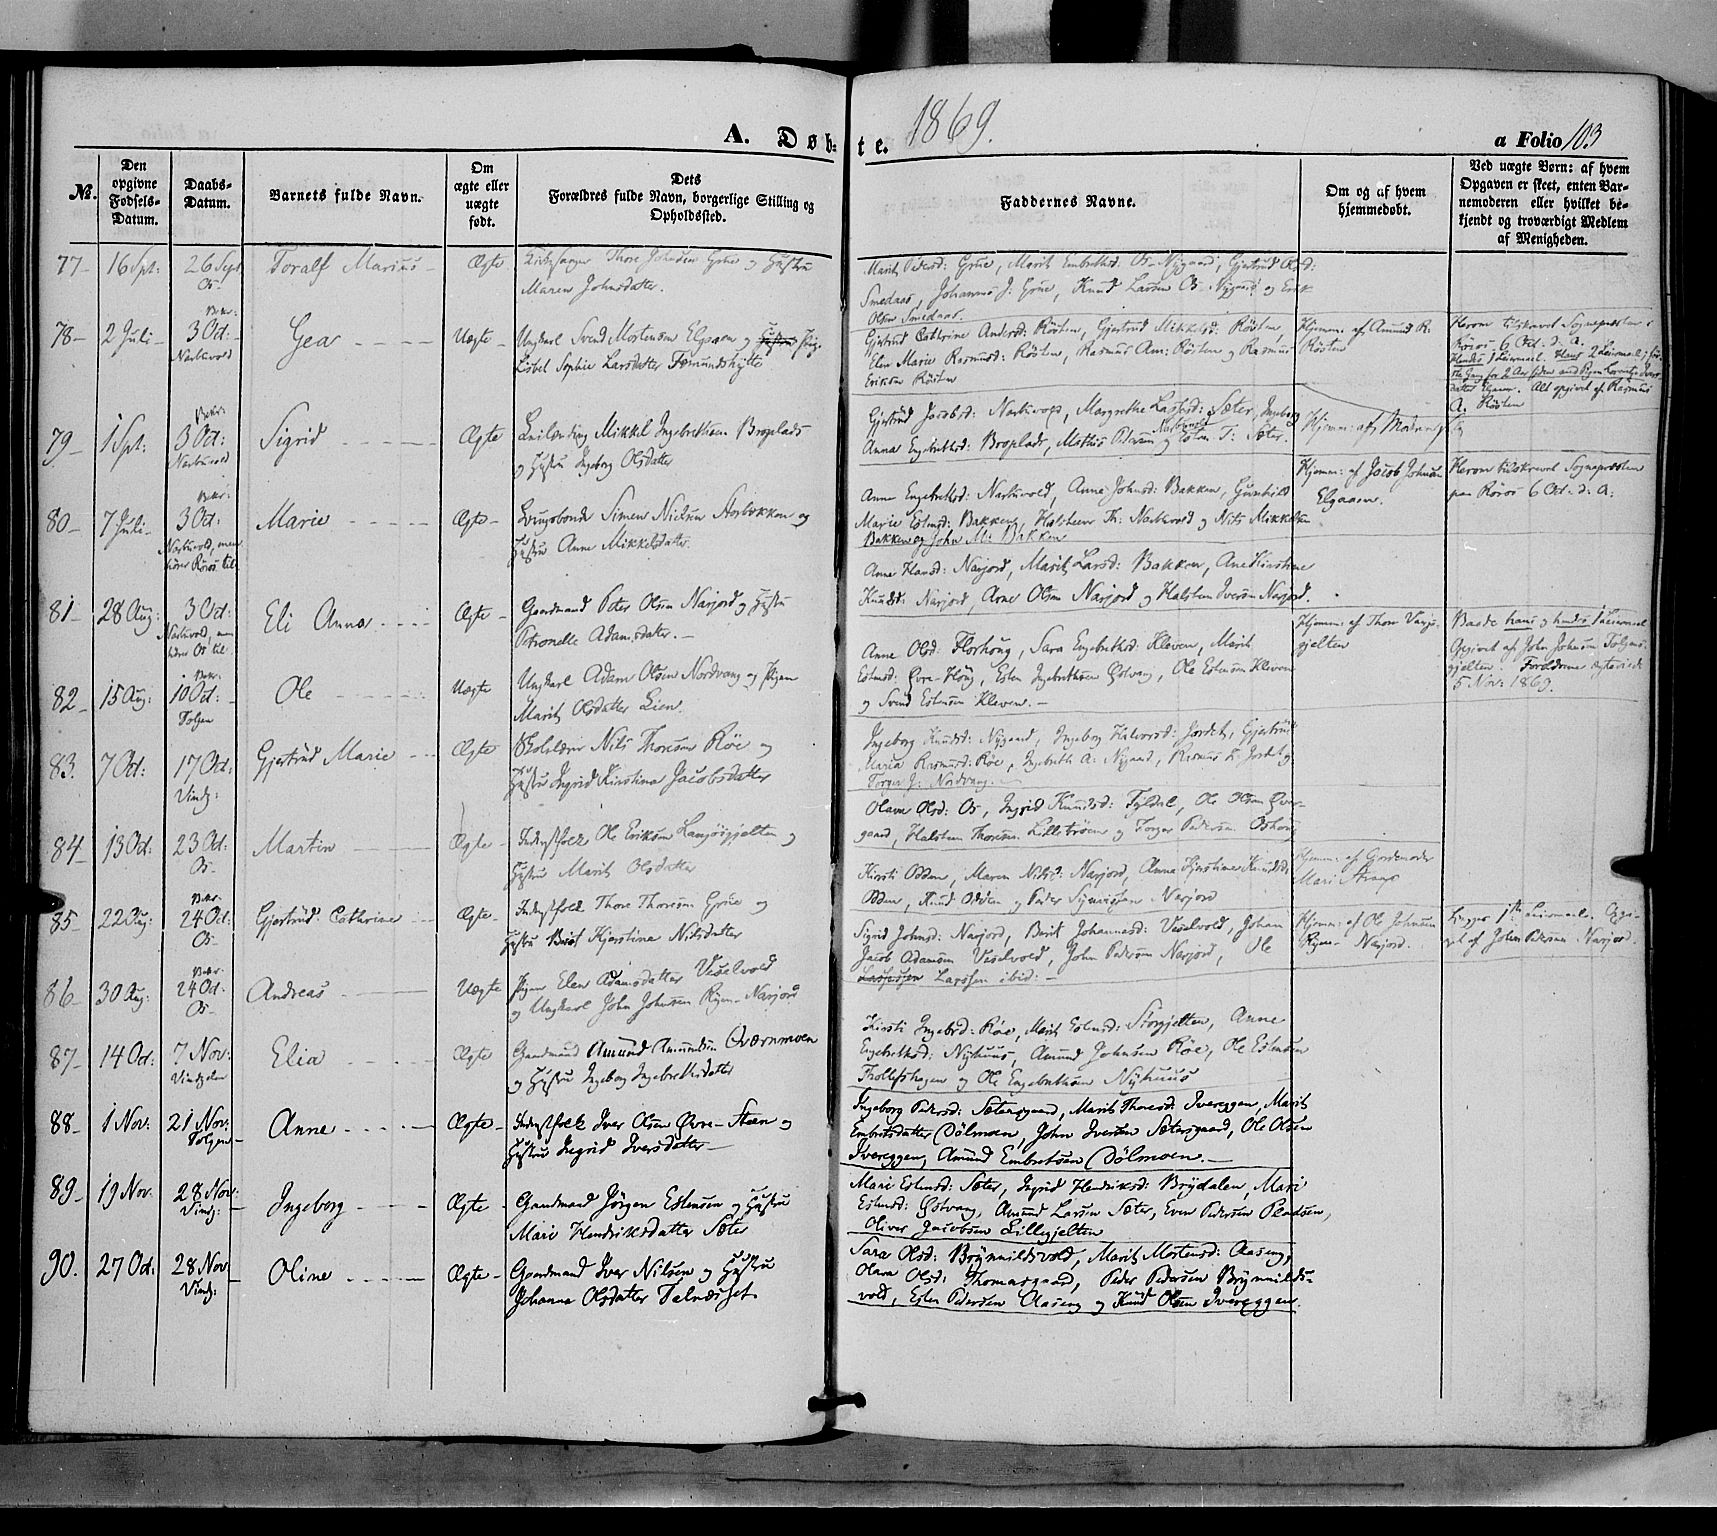 A. Døb-
te. 1869.
a Folio 103
№.
Den opgivne Fødsels-Datum.
Daabs-Datum.
Barnets fulde Navn.
Om ægte eller uægte født.
Dets Forældres fulde Navn, borgerlige Stilling og Opholdssted.
Faddernes Navne.
Om og af hvem hjemmedøbt.
Ved uægte Børn: af hvem Opgaven er skeet, enten Barnemoderen eller hvilket bekjendt og troværdigt Medlem af Menigheden.
77 16 Spt: 26 Sept Os Toralf Marius Ægte Kirkesanger Thore Johnsen Grue og Hustru
Maren Johnsdatter.
Marit Pedersd: Grue, Marit Embretsd: Os-Nygaard, Gjertrud Olsd:
Smedaas, Johannes J: Grue, Knud Larsen Os-Nygaard og Erik
Olsen Smedaas.
78 2 Juli Bekr: 3 Oct: Narbuvold Gea Uægte Ungkarl Svend Mortensen Elgaaen og Pige
Lisbet Sophie Larsdatter Fæmundshytte
Gjertrud Cathrine Andersd: Røsten, Gjertrud Mikkelsd: Røsten,
Elen Marie Rasmusd: Røsten, Rasmus Am: Røsten og Rasmus
Eriksen Røsten
Hjemm: af Amund R:
Røsten
Herom tilskrevet Sognepræsten i
Røros 6 Oct. d: A.
Hendes 1 Leiermaal. Hans 2 Leiermaal, første Gang for 2 Aar siden med
Elgaaen. Alt opgivet af Rasmus
A. Røsten
79 1 Spt: Bekr: 3 Oct: Narbuvold Sigrid Ægte Leilænding Mikkel Ingebrethsen Broplads
og Hustru Ingeborg Olsdatter
Gjertrud Jacobsd: Narbuvold, Margrethe Larsd: Sæter, Ingeborg
Anna Engebrethsd: Broplads, Mathis Pedersen Narbuvold og Esten T: Sæter.
Hjemm: af Moderen selv
80 7 Juli Bekr: 3 Oct: Narbuvold, men hører Røros til Marie Ægte Brugsbonde Simen Nielsen Storbekken og
Hustru Anne Mikkelsdatter.
Anne Engebrethsd: Narbuvold, Anne Johnsd: Bakken, Gunhild
Marie Estensd: Bakken, Halsteen Th: Narbuvold og Nils Mikkelsen
Bakken og John M: Bakken
Hjemm: af Jacob Johnsen
Elgaaen.
Herom tilskrevet Sognepræsten
paa Røros 6 Oct: d: A:
81 28 Aug: 3 Oct: Narbuvold, men hører Os til Eli Anna Ægte Gaardmand Peter Olsen Narjord og Hustru
Petronelle Adamsdatter.
Anne Hansd: Narjord, Marit Larsd: Bakken, Ane Kirstine
Knudsd: Narjord, Arne Olsen Narjord og Halsten Iversen Narjord.
82 15 Aug: Bekr: 10 Oct: Tolgen Ole Uægte Ungkarl Adam Olsen Nordvang og Pigen
Marit Olsdatter Lien.
Anne Olsd: Florhoug, Sara Engebrethsd: Kleven, Marit
Estensd: Øvre-Houg, Esten Ingebrethsen Østvang, Ole Estensen Kleven
og Svend Estensen Kleven.
Hjemm: af Thore
gjelten
Baade hans og hendes 1 Leiermaal
Opgivet af John Johnsen Tolgens-
gjelten. Forældrene ægteviede
5 Nov: 1869.
83. 7 Oct: 17 Oct: Vindg: Gjertrud Marie Ægte Skolelærer Nils Thoresen Røe og
Hustru Ingrid Kirstine Jacobsdatter
Ingeborg Knudsd: Nygaard, Ingeborg Halvorsd: Jordet, Gjertrud
Maria Rasmusd: Røe, Ingebreth A: Nygaard, Rasmus E: Jordet og
Torger J: Nordvang.
84 13 Oct: 23 Oct: Os Martin Ægte Inderstfolk Ole Eriksen Langsjøgjelten og
Hustru Marit Olsdatter
Olava Olsd: Os, Ingrid Knudsd: Tyldal, Ole Olsen Øver-
gaard, Halsten Thoresen Lillebrøen og Torger Pedersen Oshoug
85 22 Aug: Bekr: 24 Oct: Os Gjertrud Cathrine Ægte Inderstfolk Thore Thoresen Grue og
Hustru Berit Kjerstine Nilsdatter
Kirsti Odden, Maren Nilsd: Narjord, Anna Kjerstine Knudsd
Odden, Knud Odden og Peder Narjord
Hjemm: af Gjordemoder
Mari Strange
86 30 Aug: Bekr: 24 Oct: Os Andreas Uægte Pigen Elen Adamsdatter Viselvold
og Ungkarl John Johnsen Ryen-Narjord
Sigrid Johnsd: Narjord, Berit Johannesd: Viselvold, Johan
Jacob Adamsen Viselvold, John Pedersen Narjord, Ole
Larssen ibid:
Hjemm: af Ole Johnsen
Ryen-Narjord.
Begges 1ste Leiermaal. Opgi-
vet af John Pedersen Narjord.
87 14 Oct: 7 Nov: Vindgelen Elia Ægte Gaardmand Amund Amundsen Qværnmoen
og Hustru Ingeborg Ingebrethsdatter
Kirsti Ingebrd: Røe, Marit Estensd: Storgjelten, Anne
Engebrethsd: Nyhuus, Amund Johnsen Røe, Ole Estensen
Trollefshagen og Ole Engebrethsen Nyhuus
88 1 Nov: 21 Nov: Tolgen Anne Ægte Inderstfolk Iver Olsen Øvre-Steen og
Hustru Ingrid Iversdatter
Ingeborg Pedersd: Sætersgaard, Marit Thoresd: Svereggen, Marit
Embretsdatter Dølmoen, John Iversen Sætersgaard, Ole Olsen
Svereggen, Amund Embretsen Dølmoen.
89 19 Nov. 28 Nov: Vindg: Ingeborg Ægte Gaardmand Jørgen Estensen og Hustru
Mari Hendriksdatter Sæter
Mari Estensd: Sæter, Ingrid Hendriksd: Brydalen, Mari
Estensd: Østvang, Amund Larsen Sæter, Even Pedersen Pladsen,
Oliver Jacobsen Lillegjelten
90. 27 Oct: 28 Nov Vindg: Oline Ægte Gaardmand Iver Nilsen og Hustru
Johanna Olsdatter Talnæsset.
Sara Olsd: Brynnildsvold, Marit Mortensd: Aaseng,
Olava Olsd: Thomasgaard, Peder Pedersen Brynnilds-
vold, Esten Pedersen Aaseng og Knud Olsen Svereggen.